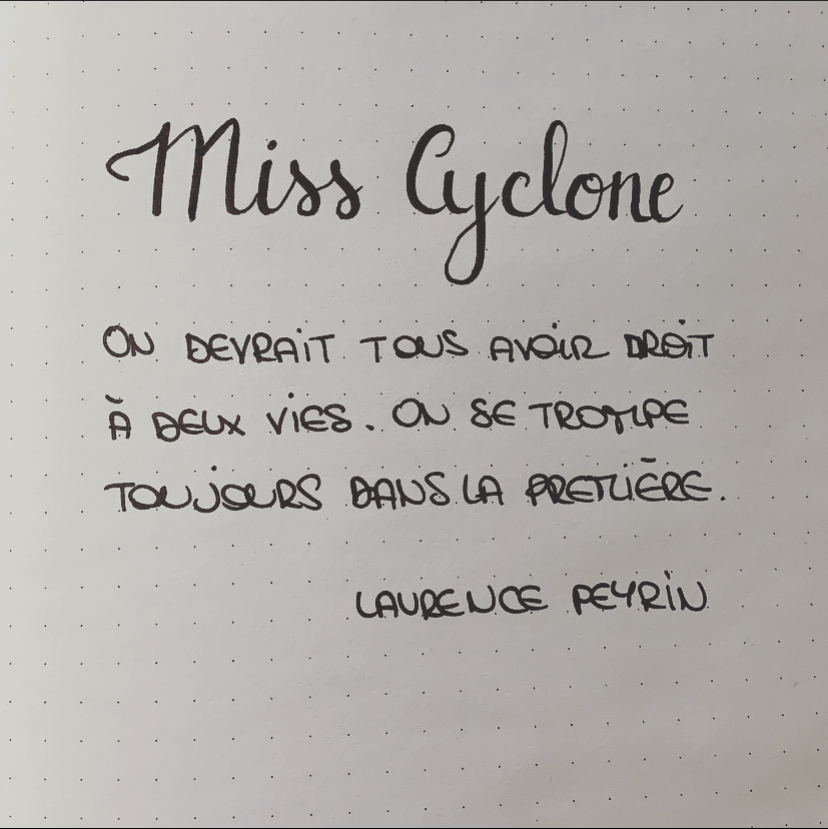 Miss Cyclone
ON DEVRAIT TOUS AVOIR DROIT
À DEUX VIES. ON SE TROMPE
TOUJOURS DANS LA PREMIÈRE.
LAURENCE PEYRIN